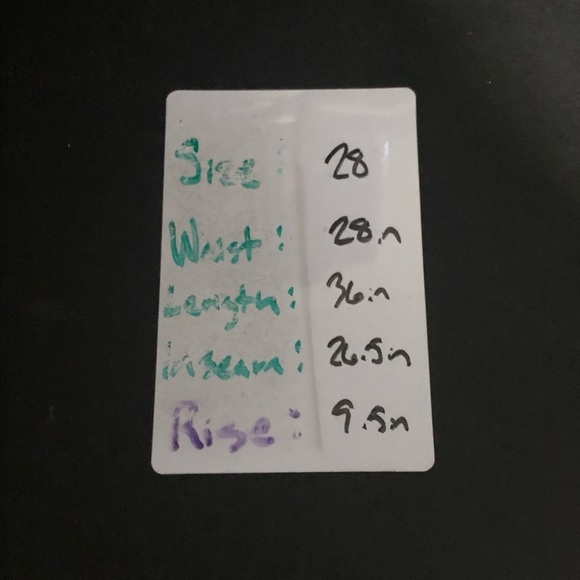 Size: 28
Waist: 28in
Length: 36in
Inseam: 26.5in
Rise: 9.5in